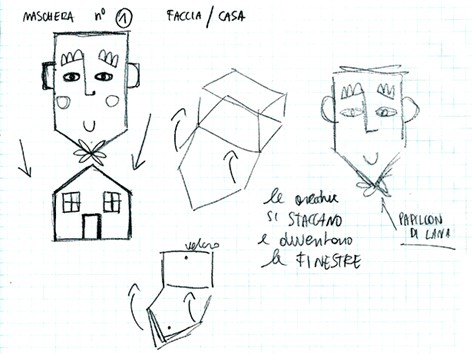 MASCHERA nº 1
FACCIA / CASA
le orecchie
si STACCANO
e diventano
le FINESTRE
PAPILLON
DI LANA
velcro